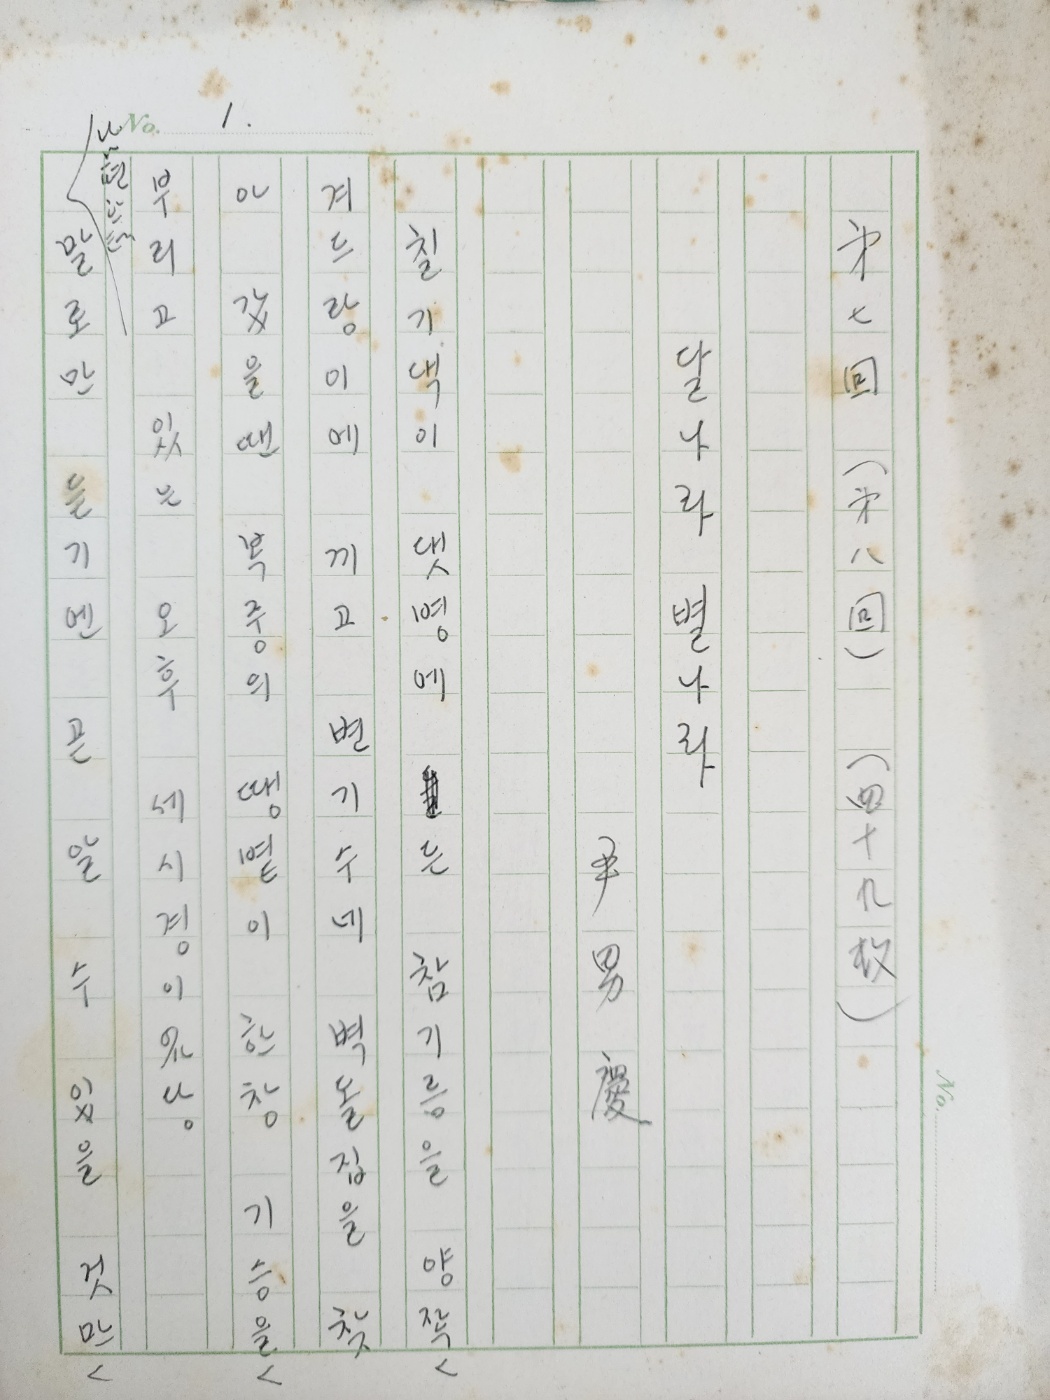 No. 1.
第七回 (第八回) (四十九枚)
달나라 별나라
尹男慶
칠기댁이 댓명에 는 참기름을 양짝<
겨드랑이에 끼고 변기수네 벽돌집을 찾
아 갔을땐 복중의 땡볕이 한창 기승을<
부리고 있는 오후 세시경이었다.
말로만 듣기엔 곧 알 수 있을 것만<
No.